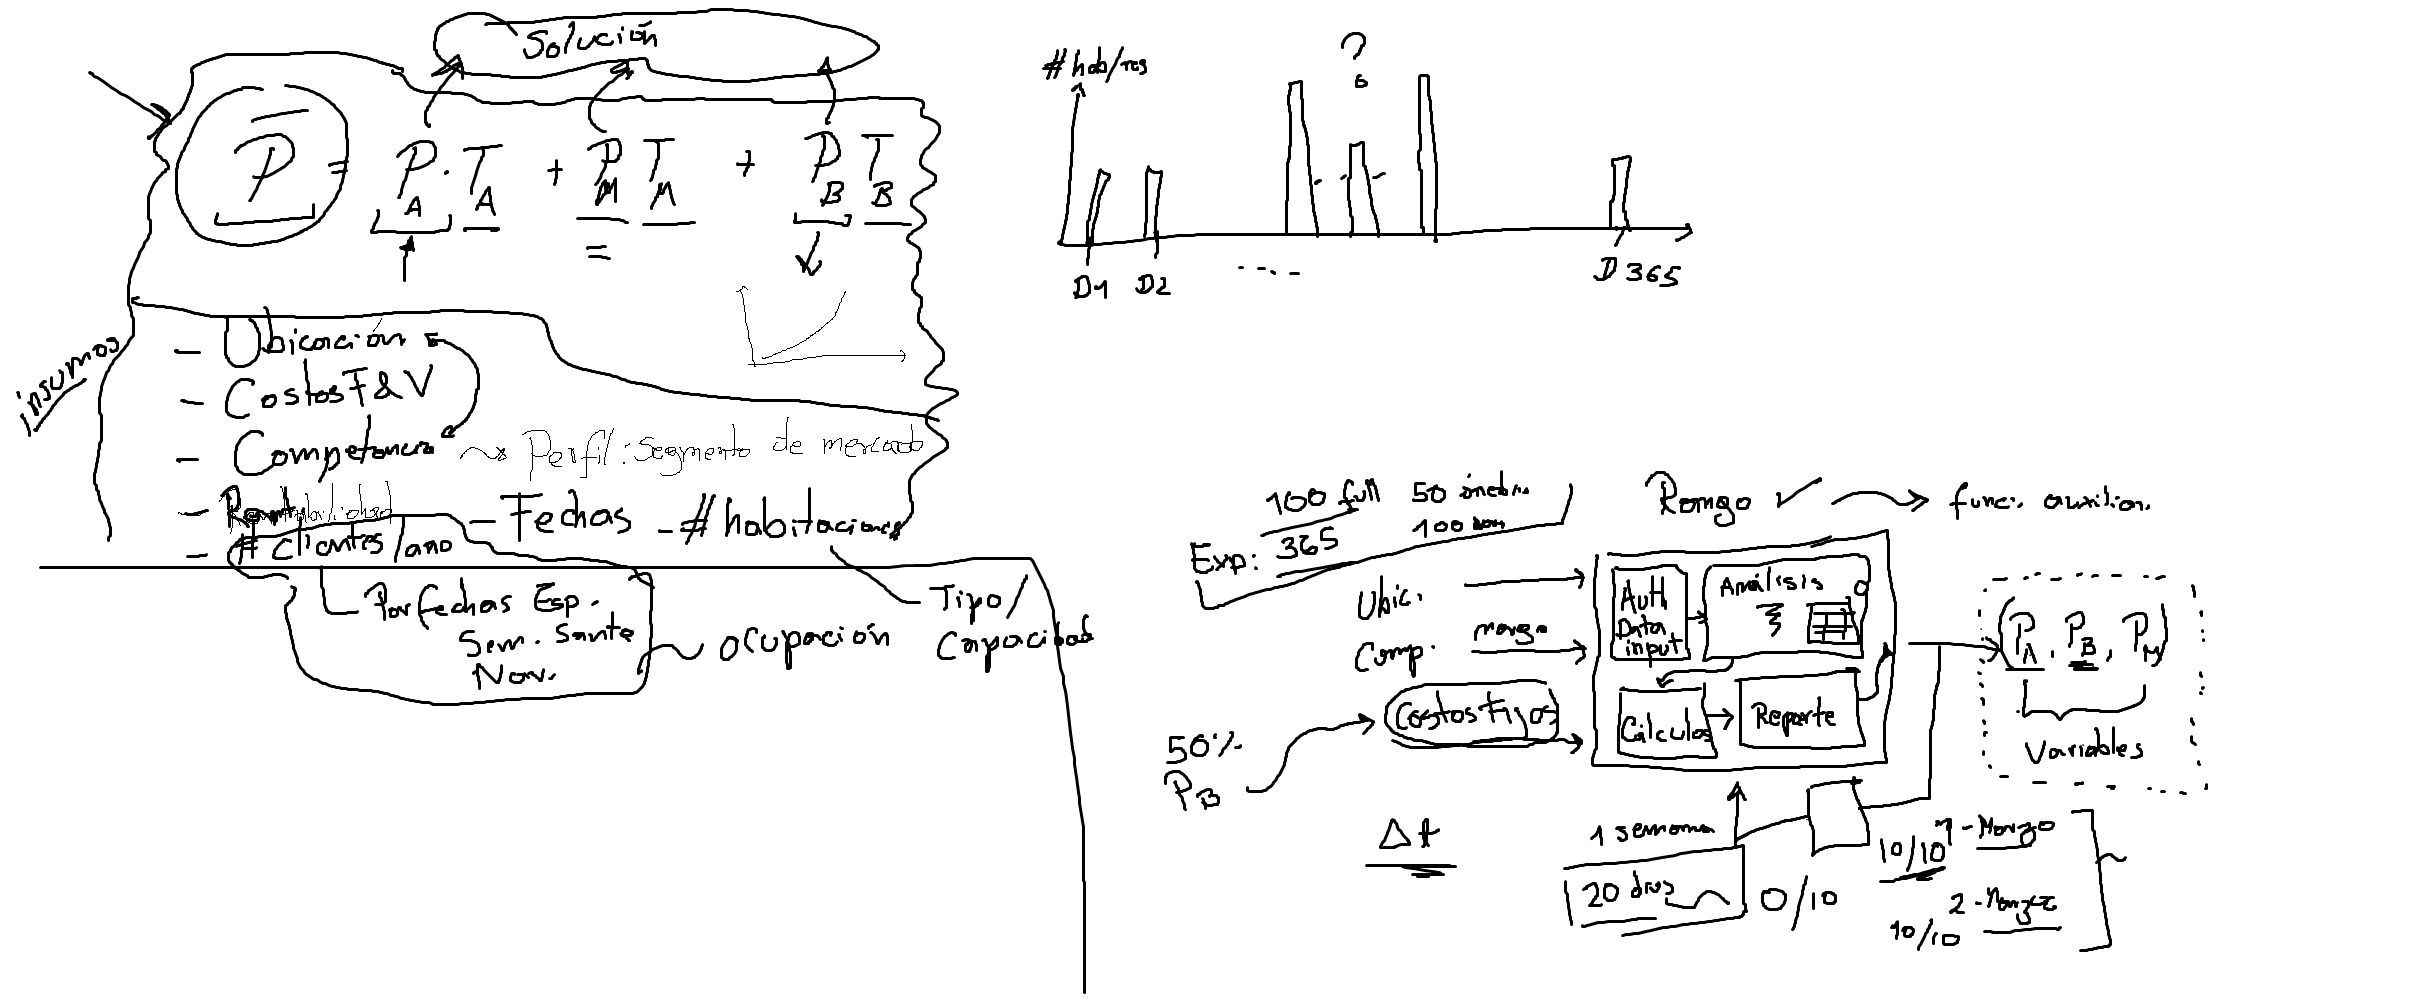 Solución
P̅ = P_A · T_A + P_M T_M + P_B T_B
=
insumos
- Ubicación
- Costos F & V
- Competencia ~> Perfil: Segmento de mercado
- Rentabilidad
- Fechas - # habitaciones
- # Clientes / año
Por fechas Esp.
Sem. Santa
Nav.
ocupación
Tipo/
Capacidad
# hab/res
?
D1 D2 .... D 365
Exp: 100 full
365
50
100
Rango ✓ → func. auxiliar.
Ubic.
Comp. margo
Costos Fijos
50%
P_B
Auth
Data
input
Análisis
Cálculos
Reporte
(P_A, P_B, P_M)
Variables
Δt
1 semana
20 dias
0/10
10/10
1 - Marzo
2 - Marzo
10/10